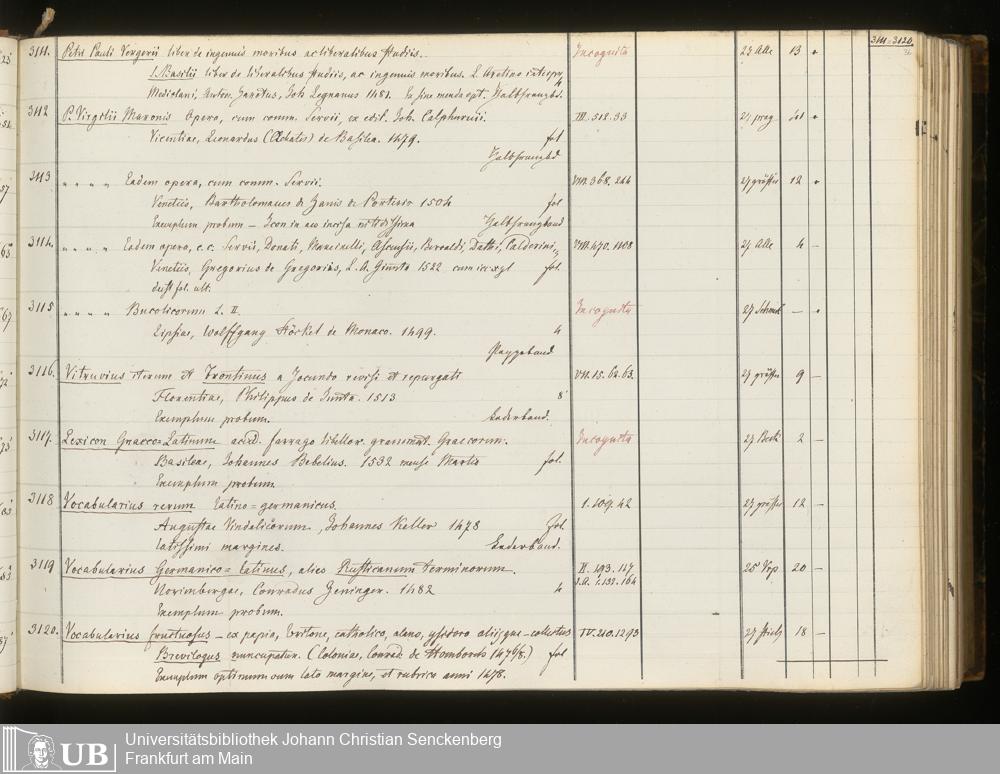 3111=3120.
3111. Petri Pauli Vergerii liber de ingenuis moribus ac liberalibus studiis. Incognita 13
S. Basilii liber de liberalibus studiis, ac ingenuis moribus. L. Aretino interpr.
Mediolani, Joh. Legnanus 1481. In fine Halbfranzbd.
3112 P. Virgilii Maronis Opera, cum comm. Servii, ex edit. Joh. Calphurnii. III. 512. 33
Vicentiae, Leonardus (Achates) de Basilea. 1479. fol
Halbfranzbd
3113 " " " " Eadem opera, cum comm. Servii. VIII. 368. 244 12
Venetiis, Bartholomaeus de Zanis de Portesio 1504 fol
Exemplum probum – Icon in aes incisa nitidissima Halbfranzband
3114. " " " " Eadem opera, c. c. Servii, Donati, Mancinelli, Ascensii, Beroaldi, Dathi, Calderini VIII. 470. 1108 4 –
Venetiis, Gregorius de Gregoriis, L. A. Giunta 1522 fol.
deest fol. ult.
3115 " " " " Bucolicorum L. II. Incognita –
Lipsiae, Wolffgang Stöckel de Monaco. 1499. 4
Pappeband
3116. Vitruvius iterum et Frontinus a Jocundo revisi et repurgati VII. 15. 62. 63. 9 –
Florentiae, Philippus de Junta. 1513 8
Exemplum probum. Lederband.
3117. Lexicon Graeco=Latinum farrago libellor. grammat. Graecorum. Incognita 2 –
Basileae, Johannes Bebelius. 1532 mense Martio fol.
Exemplum probum
3118 Vocabularius rerum latino=germanicus. I. 109. 42 12 –
Augustae Vindelicorum, Johannes Keller 1478 Fol.
latissimi margines. Lederband.
3119 Vocabularius Germanico=latinus, alias Rusticanum terminorum. II. 193. 127 20 –
S.A. I. 132. 164
Norimbergae, Conradus Zeninger. 1482 4
Exemplum probum.
3120. Vocabularius fructuosus – ex papia, britone, catholico, alano, ysidoro aliisque – collectus IV. 210. 1293 18 –
Brevilogus nuncupatur. (Coloniae, Conrad. de Homborch 147 fol
Exemplum optimum cum lato margine, et rubrica anni 1478.
UB
Universitätsbibliothek Johann Christian Senckenberg
Frankfurt am Main